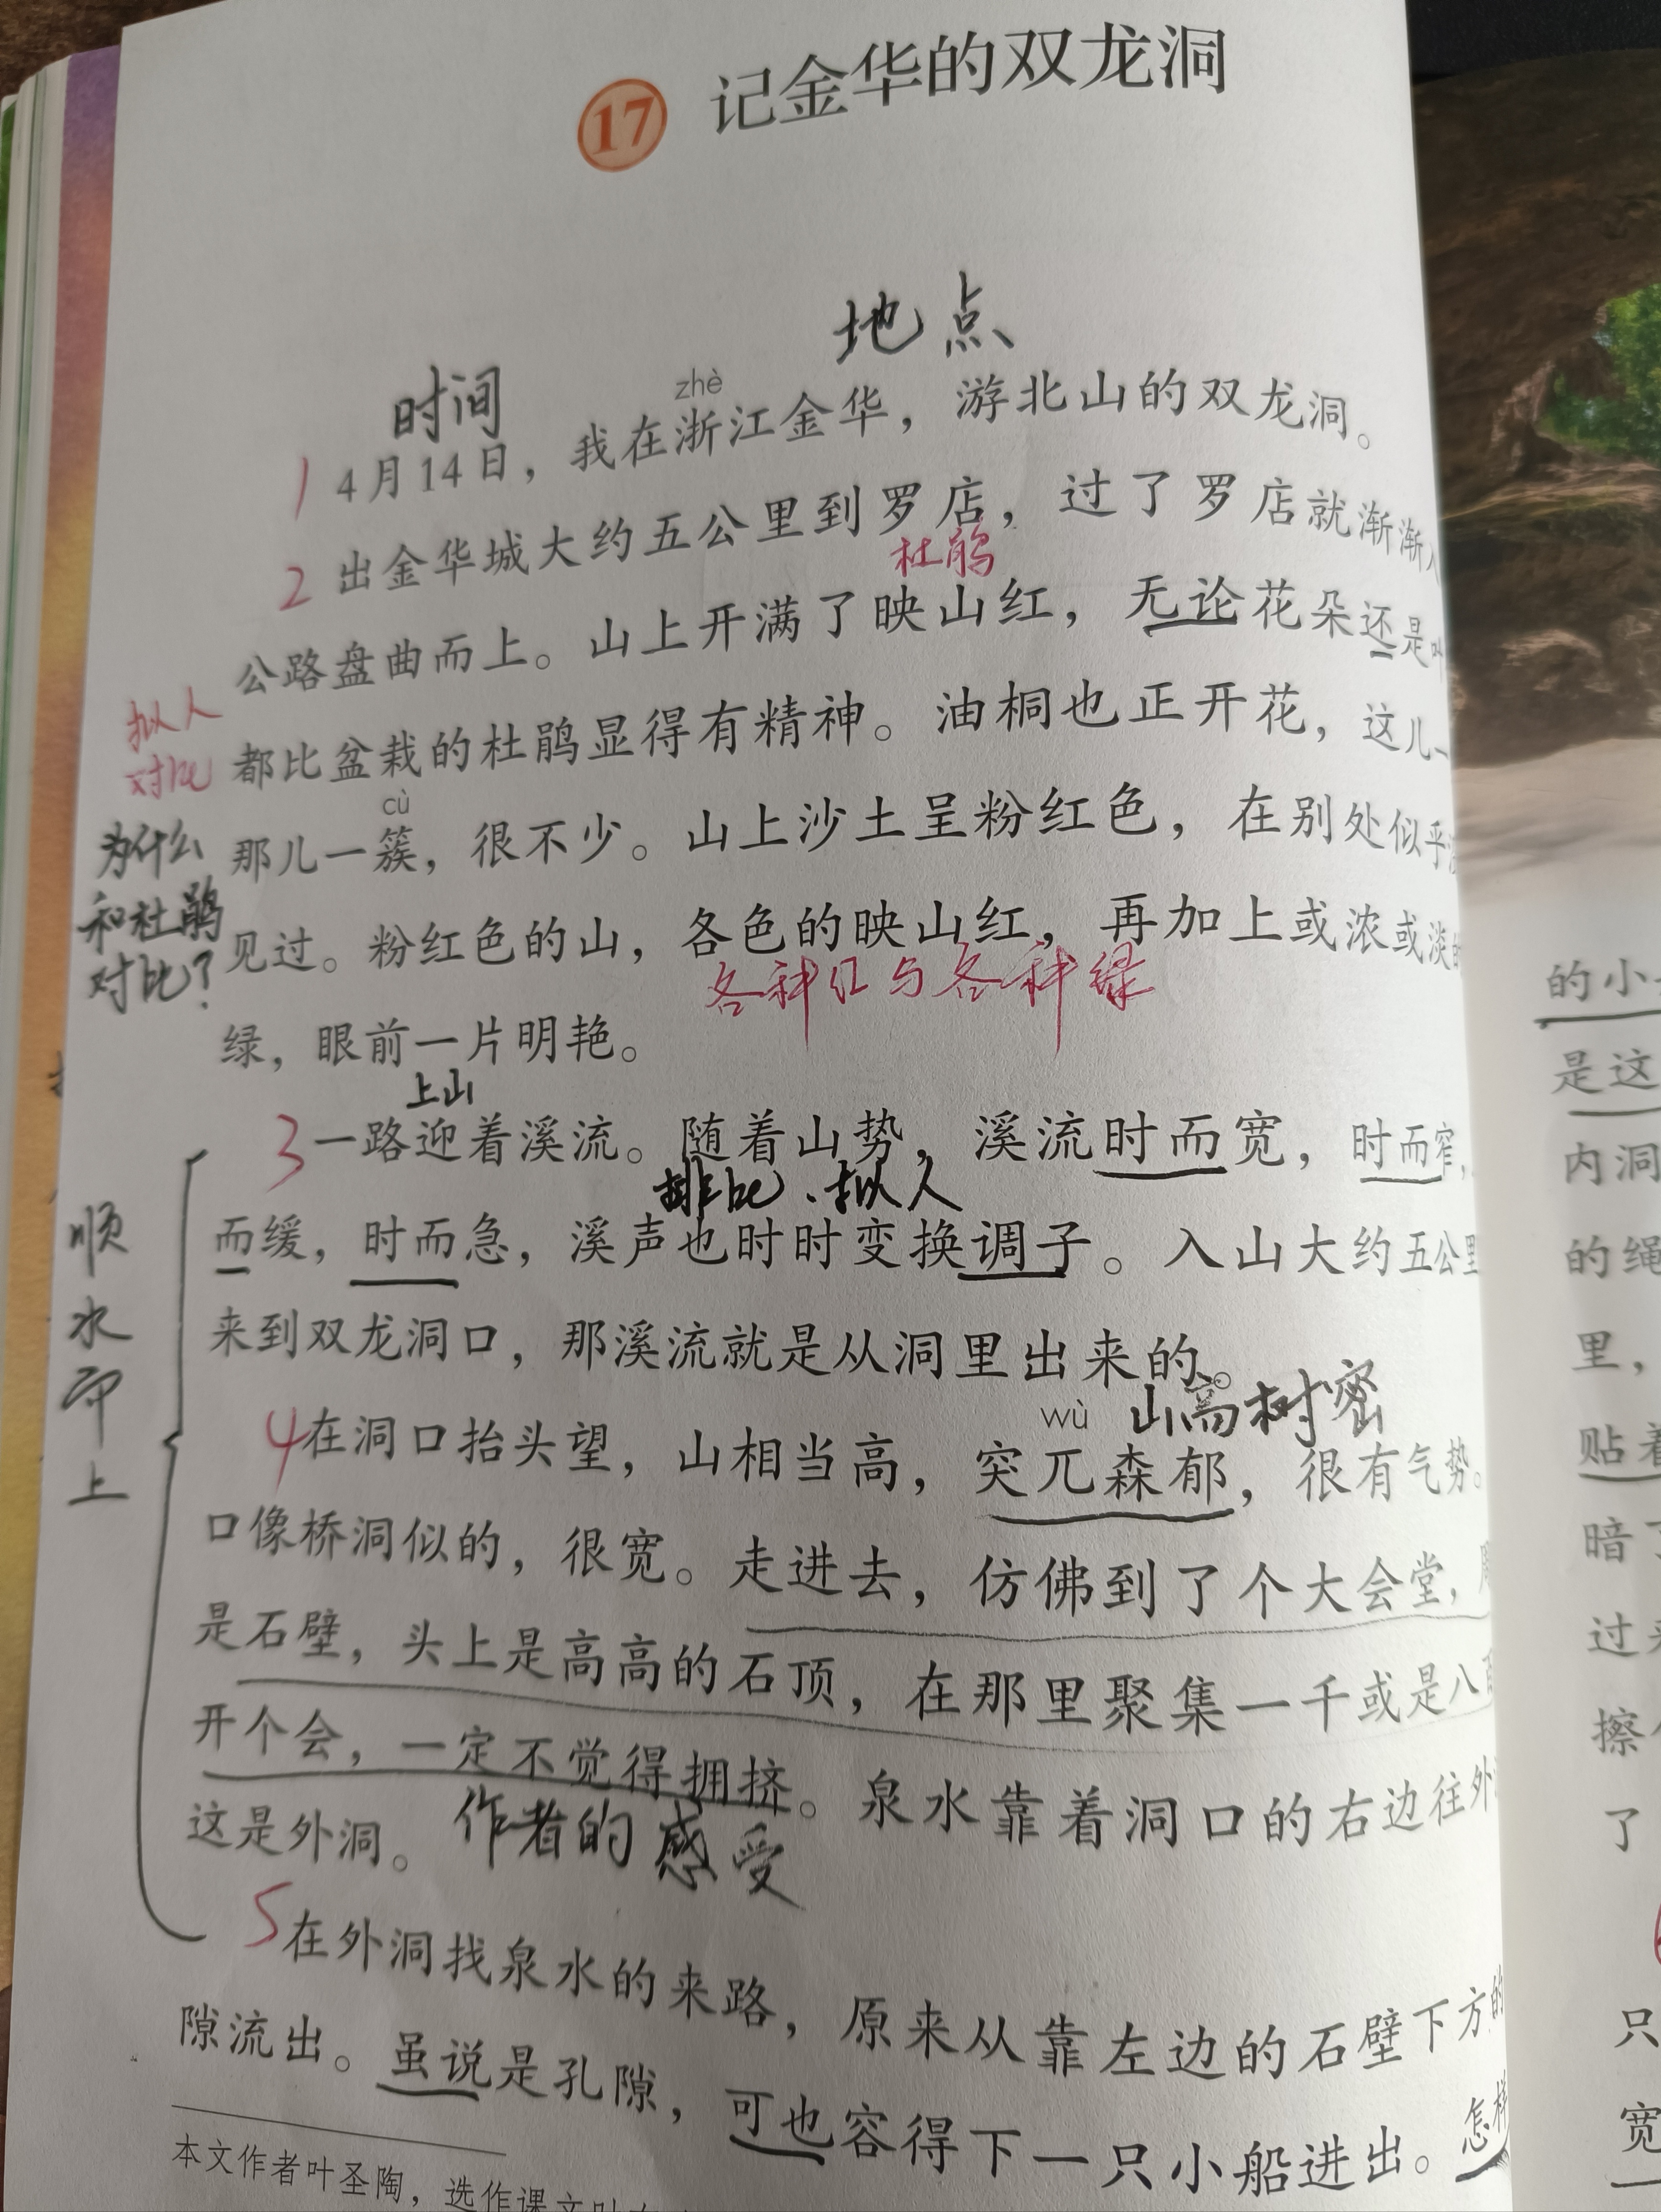 17 记金华的双龙洞
地点
时间
zhè
1 4月14日，我在浙江金华，游北山的双龙洞。
2 出金华城大约五公里到罗店，过了罗店就渐渐入
杜鹃
公路盘曲而上。山上开满了映山红，无论花朵还是叶
拟人
对比
都比盆栽的杜鹃显得有精神。油桐也正开花，这儿一
cù
为什么
和杜鹃
对比？
那儿一簇，很不少。山上沙土呈粉红色，在别处似乎没
见过。粉红色的山，各色的映山红，再加上或浓或淡的
各种红与各种绿
绿，眼前一片明艳。
上山
3 一路迎着溪流。随着山势，溪流时而宽，时而窄，
排比、拟人
而缓，时而急，溪声也时时变换调子。入山大约五公里
顺水而上
来到双龙洞口，那溪流就是从洞里出来的。
wù 山高树密
4 在洞口抬头望，山相当高，突兀森郁，很有气势。
口像桥洞似的，很宽。走进去，仿佛到了个大会堂，
是石壁，头上是高高的石顶，在那里聚集一千或是八百
开个会，一定不觉得拥挤。泉水靠着洞口的右边往外
这是外洞。作者的感受
5 在外洞找泉水的来路，原来从靠左边的石壁下方的
隙流出。虽说是孔隙，可也容得下一只小船进出。怎样
本文作者叶圣陶，选作课文时
的小
是这
内洞
的绳
里，
贴着
暗了
过来
擦
了
只
宽